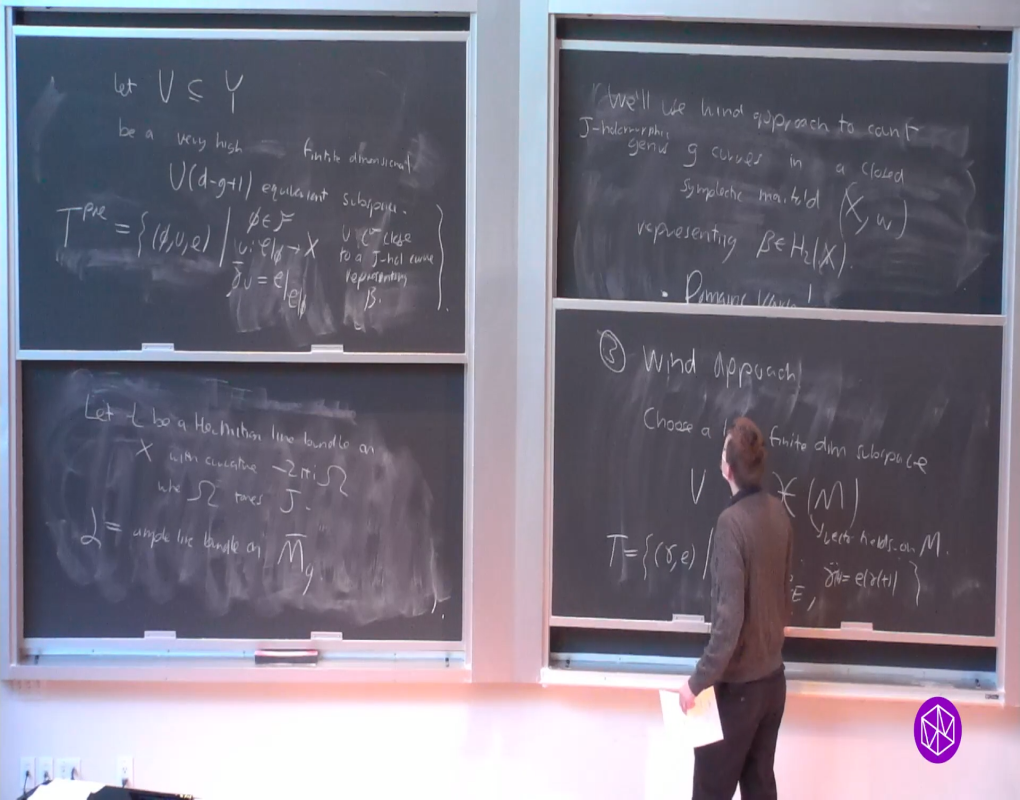 Let V ⊆ Y
be a very high finite dimensional
U(d-g+1) equivariant subspace.
T^pre = { (ϕ,u,e) | ϕ ∈ F
u: C|ϕ → X
∂̄u = e|
u C⁰ close
to a J-hol curve
representing
β. }.
Let L be a Hermitian line bundle on
X with curvature -2πiΩ
where Ω tames J.
ℒ = ample line bundle on M̄_g
We'll use wind approach to count
J-holomorphic
genus g curves in a closed
symplectic manifold (X, ω)
representing β ∈ H₂(X).
• Domains vary!
③ Wind approach
Choose a finite dim subspace
V X(M)
vector fields on M.
T = { (γ,e) | = e(γ(t)) }